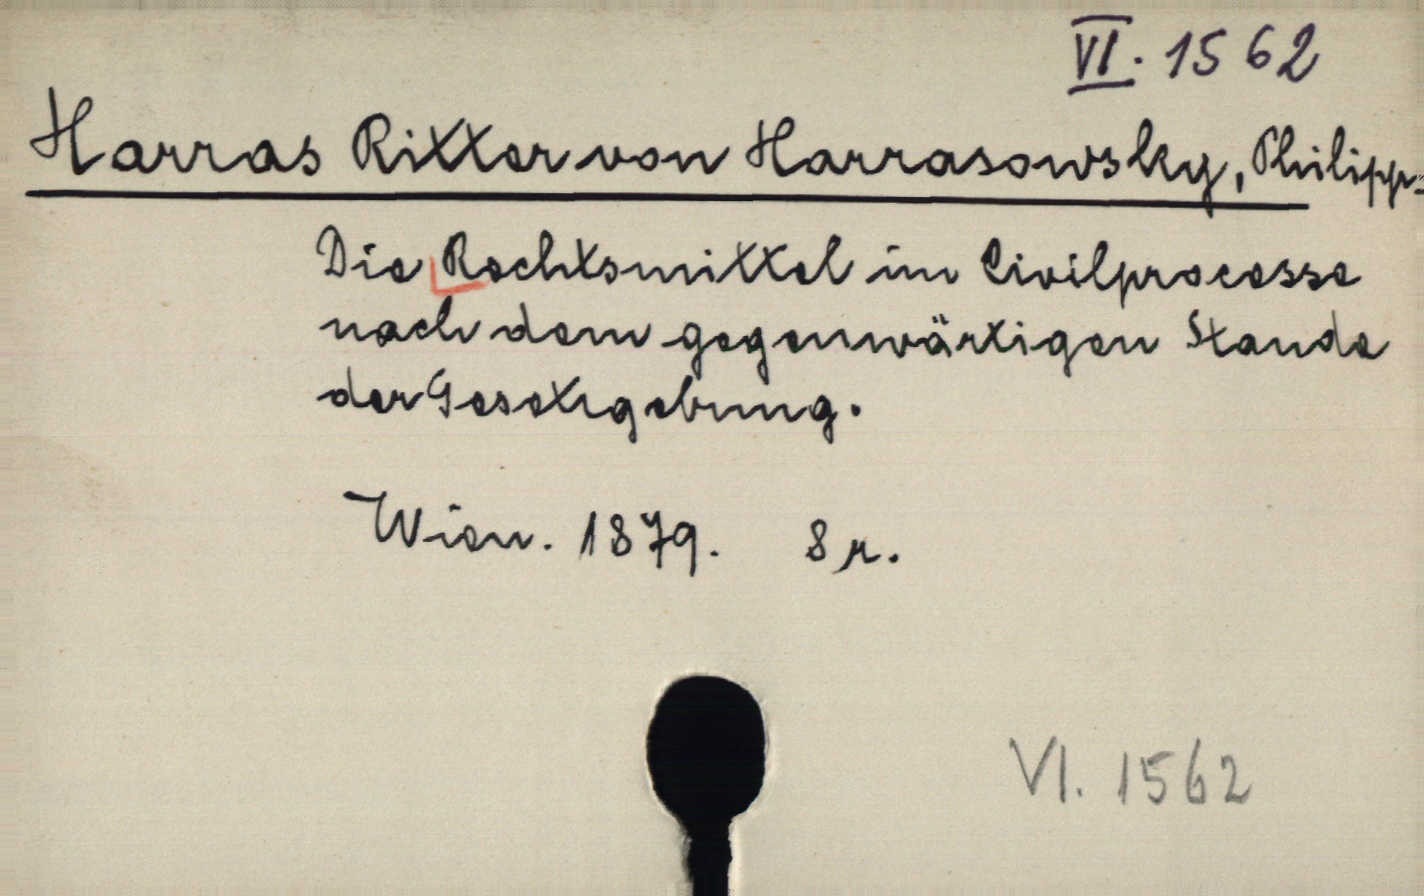 VI. 1562
Harras Ritter von Harrasowsky, Philipp:
Die Rechtsmittel im Civilprocesse
nach dem gegenwärtigen Stande
der Gesetzgebung.
Wien. 1879. 8 r.
VI. 1562